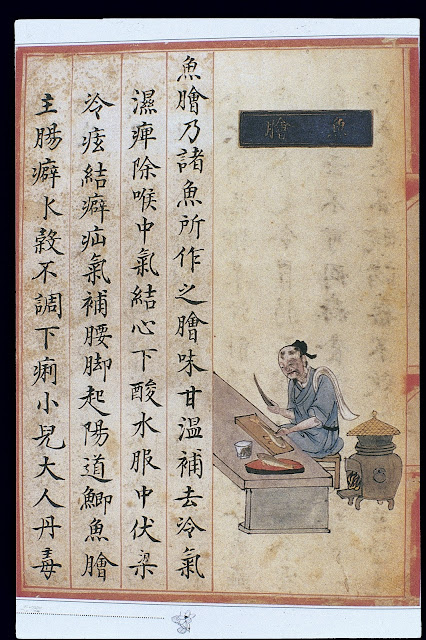 魚膾
魚膾乃諸魚所作之膾味甘溫補去冷氣
濕痺除喉中氣結心下酸水服中伏梁
冷痃結癖疝氣補腰脚起陽道鯽魚膾
主腸癖水穀不調下痢小兒大人丹毒